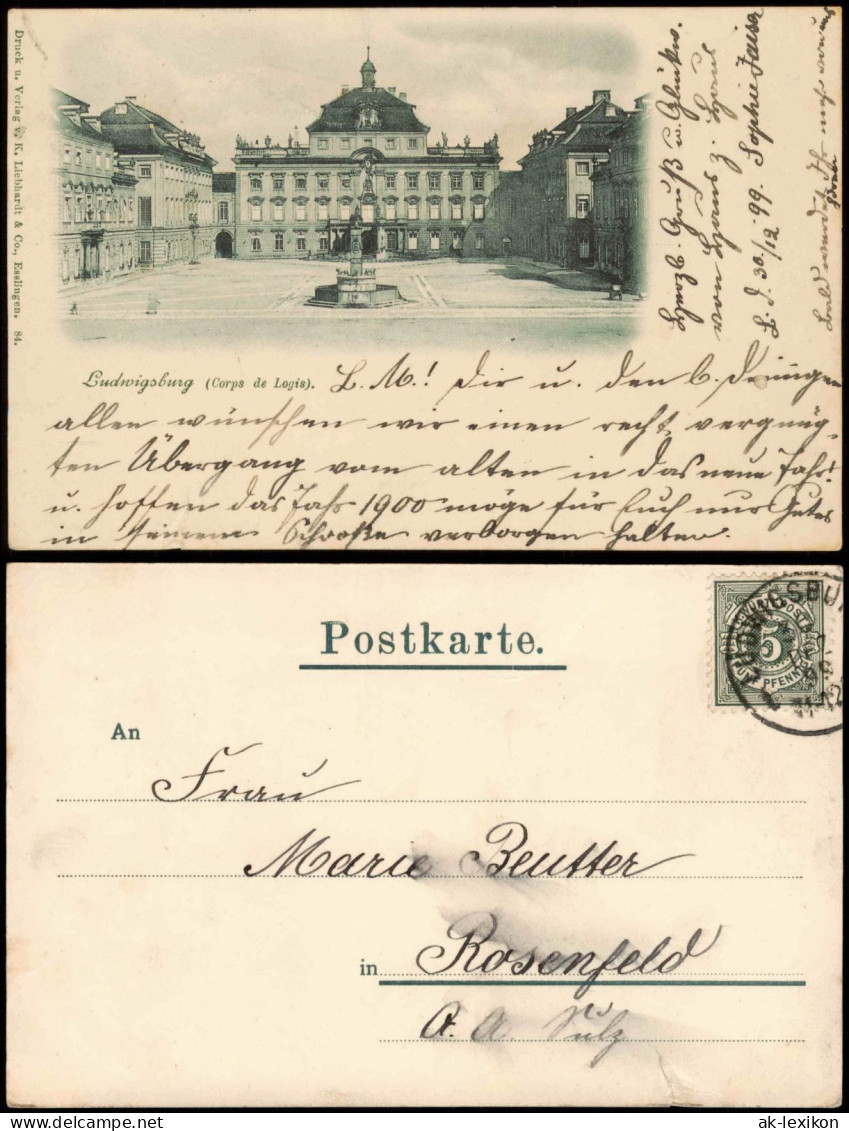 Druck u. Verlag v. K. Liebhardt & Co., Esslingen. 84.
Ludwigsburg (Corps de Logis).
L. M.! Dir u. den l. Deinigen
allen wünschen wir einen recht vergnüg-
ten Übergang vom alten in das neue Jahr!
u. hoffen das Jahr 1900 möge für Euch nur Gutes
in seinem Schooße verborgen halten.
Herzl. Gruß u. Glückw.
von Haus z. Haus
L. d. 30/12 99. Sophie
Postkarte.
WÜRTT. POSTGEBIET
5
FÜNF PFENNIG
LUDWIGSBURG
An
Frau
Marie Beutter
in Rosenfeld
O. A. Sulz
ak-lexikon